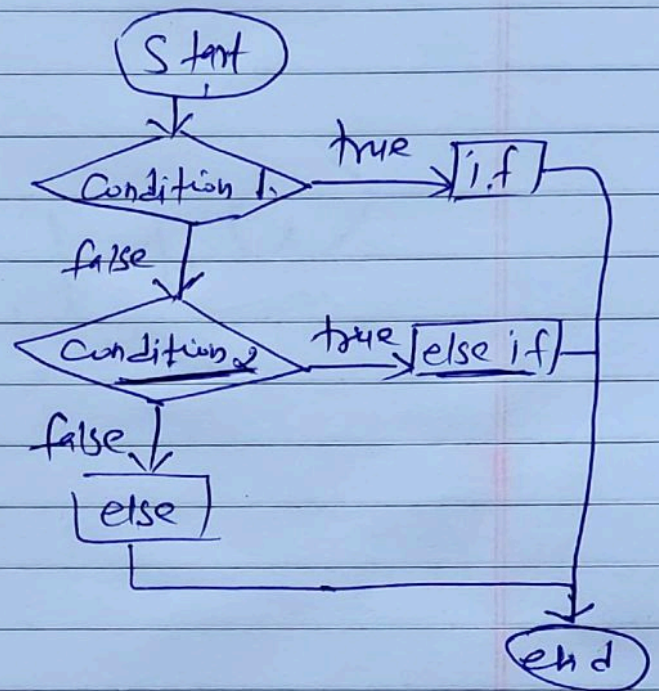 Start
Condition 1.
true
i.f
false
Condition 2
true
else if
false
else
end